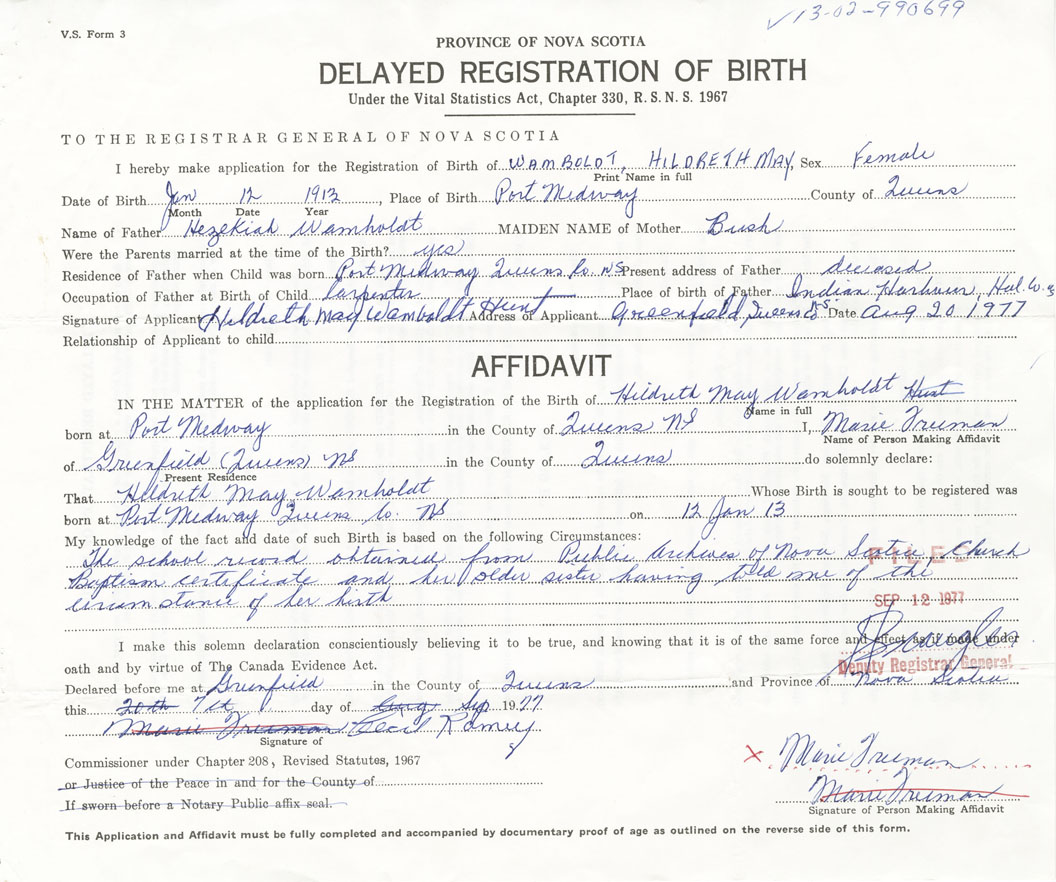 13-02-990699
V.S. Form 3
PROVINCE OF NOVA SCOTIA
DELAYED REGISTRATION OF BIRTH
Under the Vital Statistics Act, Chapter 330, R. S. N. S. 1967
TO THE REGISTRAR GENERAL OF NOVA SCOTIA
I hereby make application for the Registration of Birth of WAMBOLDT, HILDRETH MAY, Sex Female
Print Name in full
Date of Birth Jan 12 1913, Place of Birth Port Medway County of Queens
Month Date Year
Name of Father Hezekiah Wamboldt MAIDEN NAME of Mother Bush
Were the Parents married at the time of the Birth? yes
Residence of Father when Child was born Port Medway Queens Co. NS Present address of Father deceased
Occupation of Father at Birth of Child Carpenter Place of birth of Father Indian Harbour, Hal. Co.
Signature of Applicant Hildreth May Wamboldt Hunt Address of Applicant Greenfield, Queens Co NS Date Aug 20 1977
Relationship of Applicant to child
AFFIDAVIT
IN THE MATTER of the application for the Registration of the Birth of Hildreth May Wamboldt Hunt
Name in full
born at Port Medway in the County of Queens NS I, Marie Freeman
Name of Person Making Affidavit
of Greenfield (Queens) NS in the County of Queens do solemnly declare:
Present Residence
That Hildreth May Wamboldt Whose Birth is sought to be registered was
born at Port Medway Queens Co. NS on 12 Jan 13
My knowledge of the fact and date of such Birth is based on the following Circumstances:
The school record obtained from Public Archives of Nova Scotia, Church
Baptism certificate and her older sister having told me of the
circumstance of her birth
FILED
SEP 12 1977
I make this solemn declaration conscientiously believing it to be true, and knowing that it is of the same force and effect as if made under
oath and by virtue of The Canada Evidence Act.
Deputy Registrar General
Declared before me at Greenfield in the County of Queens and Province of Nova Scotia
this 20th 7th day of Aug Sep 1977
Marie Freeman Cecil Ramey
Signature of
Commissioner under Chapter 208, Revised Statutes, 1967
or Justice of the Peace in and for the County of
If sworn before a Notary Public affix seal.
X Marie Freeman
Marie Freeman
Signature of Person Making Affidavit
This Application and Affidavit must be fully completed and accompanied by documentary proof of age as outlined on the reverse side of this form.